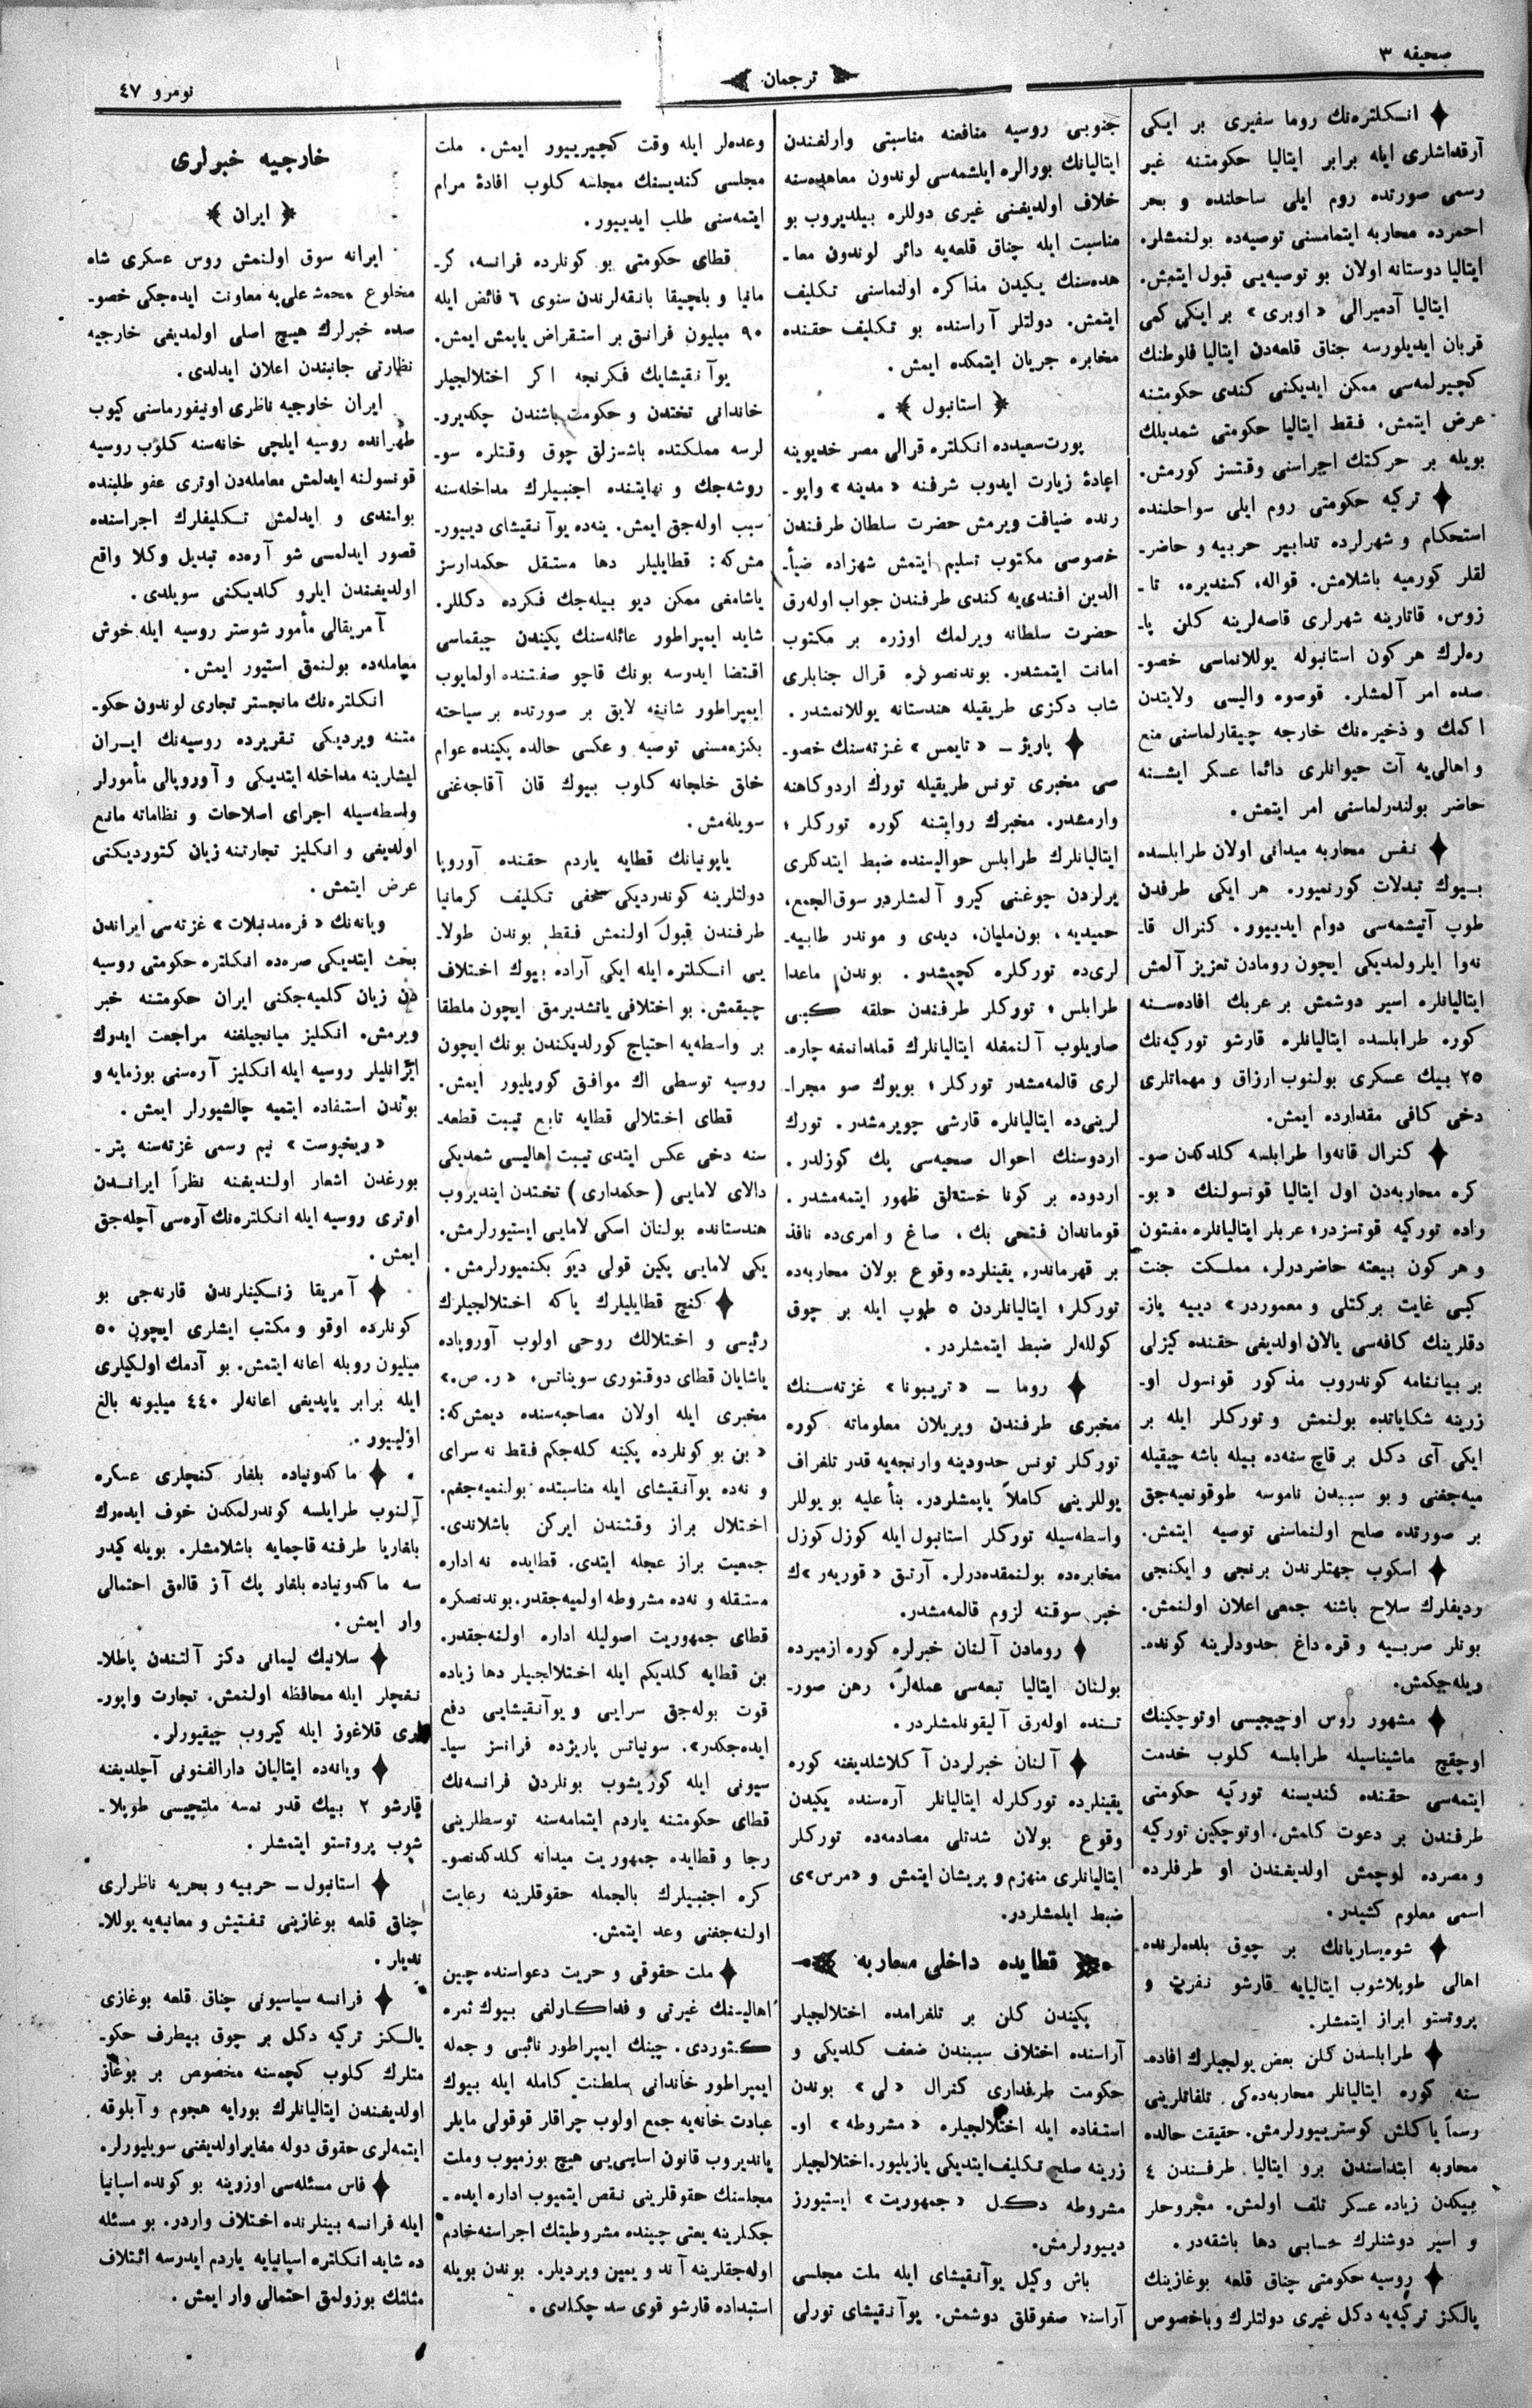 صحيفه ٣
ترجمان
نومرو ٤٧
انكلتره‌نك روما سفيرى بر ايكى
آرقداشلرى ايله برابر ايتاليا حكومتنه غير
رسمى صورتده روم ايلى ساحلنده و بحر
احمرده محاربه ايتمامسنى توصيه‌ده بولنمشلر.
ايتاليا دوستانه اولان بو توصيه‌يى قبول ايتمش.
ايتاليا آدميرالى «اوبرى» بر ايكى كمى
قربان ايديلورسه جناق قلعه‌دن ايتاليا فلوطنك
كچيرلمه‌سى ممكن ايديكنى كندى حكومتنه
عرض ايتمش، فقط ايتاليا حكومتى شمديلك
بويله بر حركتك اجراسنى وقتسز كورمش.
تركيه حكومتى روم ايلى سواحلنده
استحكام و شهرلرده تدابير حربيه و حاضر-
لقلر كورميه باشلامش. قواله، كمنديره، تا-
زوس، قاتارينه شهرلرى قاصه‌لرينه كلن پا-
ره‌لرك هر كون استانبوله يوللانماسى خصو-
صده امر آلمشلر. قوصوه واليسى ولايتدن
اكمك و ذخيره‌نك خارجه چيقارلماسنى منع
و اهالى‌يه آت حيوانلرى دائما عسكر ايشنه
حاضر بولندرلماسنى امر ايتمش.
نفس محاربه ميدانى اولان طرابلسده
بيوك تبدلات كورنميور. هر ايكى طرفدن
طوپ آتيشمه‌سى دوام ايدييور. كنرال قا-
نه‌وا ايلرولمديكى ايچون رومادن تعزيز آلمش
ايتاليانلره اسير دوشمش بر عربك افاده‌سنه
كوره طرابلسده ايتاليانلره قارشو توركيه‌نك
٢٥ بيك عسكرى بولنوب ارزاق و مهماتلرى
دخى كافى مقدارده ايمش.
كنرال قانه‌وا طرابلسه كلدكدن صو-
كره محاربه‌دن اول ايتاليا قونسولنك «بو-
راده توركيه قوتسزدر؛ عربلر ايتاليانلره مفتون
و هر كون بيعته حاضردرلر، مملكت جنت
كبى غايت بركتلى و معموردر» دييه ياز-
دقلرينك كافه‌سى يالان اولديغى حقنده كيزلى
بر بياننامه كوندروب مذكور قونسول او-
زرينه شكاياتده بولنمش و توركلر ايله بر
ايكى آى دكل بر قاچ سنه‌ده بيله باشه چيقيله
ميه‌جغنى و بو سببدن ناموسه طوقونميه‌جق
بر صورتده صلح اولنماسنى توصيه ايتمش.
اسكوب جهتلرندن برنجى و ايكنجى
رديفلرك سلاح باشنه جمعى اعلان اولنمش.
بونلر صربيه و قره داغ حدودلرينه كونده-
ريله‌جكمش.
مشهور روس اوچيجيسى اوتوچكينك
اوچقچ ماشيناسيله طرابلسه كلوب خدمت
ايتمه‌سى حقنده كنديسنه توركيه حكومتى
طرفندن بر دعوت كلمش. اوتوچكين توركيه
و مصرده لوچمش اولديغندن او طرفلرده
اسمى معلوم كشيدر.
شوه‌يساريانك بر چوق بلده‌لرنده
اهالى طوپلاشوب ايتاليايه قارشو نفرت و
پروتستو ابراز ايتمشلر.
طرابلسدن كلن بعض يولجيلرك افاده-
سنه كوره ايتاليانلر محاربه‌ده‌كى تلفاتلرينى
رسماً ياكلش كوستريورلرمش. حقيقت حالده
محاربه ابتداسندن برو ايتاليا طرفندن ٤
بيكدن زياده عسكر تلف اولمش. مجروحلر
و اسير دوشنلرك حسابى دها باشقه‌در.
روسيه حكومتى چناق قلعه بوغازينك
يالكز تركيه‌يه دكل غيرى دولتلرك و باخصوص
جنوبى روسيه منافعنه مناسبتى وارلغندن
ايتاليانك بورالره ايلشمه‌سى لوندون معاهده‌سنه
خلاف اولديغنى غيرى دوللره بيلديروب بو
مناسبت ايله چناق قلعه‌يه دائر لوندون معا-
هده‌سنك يكيدن مذاكره اولنماسنى تكليف
ايتمش. دولتلر آراسنده بو تكليف حقنده
مخابره جريان ايتمكده ايمش.
استانبول
پورت‌سعيدده انكلتره قرالى مصر خديوينه
اعادۀ زيارت ايدوب شرفنه «مدينه» واپو-
رنده ضيافت ويرمش حضرت سلطان طرفندن
خصوصى مكتوب تسليم ايتمش شهزاده ضيأ-
الدين افندى‌يه كندى طرفندن جواب اوله‌رق
حضرت سلطانه ويرلمك اوزره بر مكتوب
امانت ايتمشدر. بوندنصوكره قرال جنابلرى
شاب دكزى طريقيله هندستانه يوللانمشدر.
پاريژ — «تايمس» غزته‌سنك خصو-
صى مخبرى تونس طريقيله تورك اردوكاهنه
وارمشدر. مخبرك روايتنه كوره توركلر؛
ايتاليانلرك طرابلس حواليسنده ضبط ايتدكلرى
يرلردن چوغنى كيرو آلمشلردر سوق‌الجمع،
حميديه، بون‌مليان، ديدى و موندر طابيه-
لرى‌ده توركلره كچمشدر. بوندن ماعدا
طرابلس؛ توركلر طرفندن حلقه كبى
صاريلوب آلنمغله ايتاليانلرك قملدانمغه چاره-
لرى قالمه‌مشدر توركلر؛ بويوك صو مجرا-
لرينى‌ده ايتاليانلره قارشى چويرمشدر. تورك
اردوسنك احوال صحيه‌سى بك كوزلدر.
اردوده بر كونا خسته‌لق ظهور ايتمه‌مشدر.
قوماندان فتحى بك، صاغ و امرى‌ده نافذ
بر قهرماندر. يقينلرده وقوع بولان محاربه‌ده
توركلر؛ ايتاليانلردن ٥ طوپ ايله بر چوق
كولله‌لر ضبط ايتمشلردر.
روما — «تريبونا» غزته‌سنك
مخبرى طرفندن ويريلان معلوماته كوره
توركلر تونس حدودينه وارنجه‌يه قدر تلغراف
يوللرينى كاملاً ياپمشلردر. بنأ عليه بو يوللر
واسطه‌سيله توركلر استانبول ايله كوزل كوزل
مخابره‌ده بولنمقده‌درلر. آرتق «قوريه‌ر»ك
خبر سوقنه لزوم قالمه‌مشدر.
رومادن آلنان خبرلره كوره ازميرده
بولنان ايتاليا تبعه‌سى عمله‌لر؛ رهن صور-
تنده اوله‌رق آليقونلمشلردر.
آلنان خبرلردن آكلاشلديغنه كوره
يقينلرده توركلرله ايتاليانلر آره‌سنده يكيدن
وقوع بولان شدتلى مصادمه‌ده توركلر
ايتاليانلرى منهزم و پريشان ايتمش و «مرس»ى
ضبط ايلمشلردر.
قطايده داخلى محاربه
پكيندن كلن بر تلغرامده اختلالجيلر
آراسنده اختلاف سببندن ضعف كلديكى و
حكومت طرفدارى كنرال «لى» بوندن
استفاده ايله اختلالجيلره «مشروطه» او-
زرينه صلح تكليف ايتديكى يازيليور. اختلالجيلر
مشروطه دكل «جمهوريت» ايستيورز
دييورلرمش.
باش وكيل يوآنقيشاى ايله ملت مجلسى
آراسنه صغوقلق دوشمش. يوآنقيشاى تورلى
وعده‌لر ايله وقت كچيرييور ايمش. ملت
مجلسى كنديسنك مجلسه كلوب افادۀ مرام
ايتمه‌سنى طلب ايدييور.
قطاى حكومتى بو كونلرده فرانسه، كر-
مانيا و بلچيقا بانقه‌لرندن سنوى ٦ فائض ايله
٩٠ ميليون فرانق بر استقراض ياپمش ايمش.
يوآنقيشايك فكرنجه اكر اختلالجيلر
خاندانى تختدن و حكومت باشندن چكديرو-
لرسه مملكتده باشسزلق چوق وقتلره سو-
روشه‌جك و نهايتنده اجنبيلرك مداخله‌سنه
سبب اوله‌جق ايمش. ينه‌ده يوآنقيشاى دييور-
مش‌كه: قطايليلر دها مستقل حكمدارسز
ياشامغى ممكن ديو بيله‌جك فكرده دكللر.
شايد ايمپراطور عائله‌سنك پكيندن چيقماسى
اقتضا ايدرسه بونك قاچو صفتنده اولمايوب
ايمپراطور شاننه لايق بر صورتده بر سياحته
بكزه‌مسنى توصيه و عكسى حالده پكينده عوام
خلق خلجانه كلوب بيوك قان آقاجه‌غنى
سويله‌مش.
ياپونيانك قطايه ياردم حقنده آوروپا
دولتلرينه كوندرديكى مخفى تكليف كرمانيا
طرفندن قبول اولنمش فقط بوندن طولا-
يى انكلتره ايله ايكى آراده بيوك اختلاف
چيقمش. بو اختلافى ياتشديرمق ايچون ملطقا
بر واسطه‌يه احتياج كورلديكندن بونك ايچون
روسيه توسطى اك موافق كوريليور ايمش.
قطاى اختلالى قطايه تابع تيبت قطعه-
سنه دخى عكس ايتدى تيبت اهاليسى شمديكى
دالاى لامايى (حكمدارى) تختدن اينديروب
هندستانده بولنان اسكى لامايى ايستيورلرمش.
يكى لامايى پكين قولى ديو بكنميورلرمش.
كنچ قطايليلرك ياكه اختلالجيلرك
رئيسى و اختلالك روحى اولوب آوروپاده
ياشايان قطاى دوقتورى سوينائس، «ر. ص.»
مخبرى ايله اولان مصاحبه‌سنده ديمش‌كه:
«بن بو كونلرده پكينه كله‌جكم فقط نه سراى
و نه‌ده يوآنقيشاى ايله مناسبتده بولنميه‌جغم.
اختلال براز وقتندن ايركن باشلاندى.
جمعيت براز عجله ايتدى. قطايده نه اداره
مستقله و نه‌ده مشروطه اولميه‌جقدر. بوندنصكره
قطاى جمهوريت اصوليله اداره اولنه‌جقدر.
بن قطايه كلديكم ايله اختلالجيلر دها زياده
قوت بوله‌جق سرايى و يوآنقيشايى دفع
ايده‌جكدر». سونياتس پاريژده فرانسز سيا-
سيونى ايله كوريشوب بونلردن فرانسه‌نك
قطاى حكومتنه ياردم ايتمامه‌سنه توسطلرينى
رجا و قطايده جمهوريت ميدانه كلدكدنصو-
كره اجنبيلرك بالجمله حقوقلرينه رعايت
اولنه‌جغنى وعد ايتمش.
ملت حقوقى و حريت دعواسنده چين
اهاليسنك غيرتى و فداكارلغى بيوك ثمره
كتوردى. چينك ايمپراطور نائبى و جمله
ايمپراطور خاندانى سلطنت كامله ايله بيوك
عبادت خانه‌يه جمع اولوب چراقلر قوقولى مايلر
يانديروب قانون اساسى‌يى هيچ بوزميوب و ملت
مجلسنك حقوقلرينى نقص ايتميوب اداره ايده-
جكلرينه يعنى چينده مشروطيتك اجراسنه خادم
اوله‌جقلرينه آند و يمين ويرديلر. بوندن بويله
استبداده قارشو قوى سد چكلدى.
خارجيه خبرلرى
ايران
ايرانه سوق اولنمش روس عسكرى شاه
مخلوع محمد على‌يه معاونت ايده‌جكى خصو-
صده خبرلرك هيچ اصلى اولمديغى خارجيه
نظارتى جانبندن اعلان ايدلدى.
ايران خارجيه ناظرى اونيفورماسنى كيوب
طهرانده روسيه ايلچى خانه‌سنه كلوب روسيه
قونسولنه ايدلمش معامله‌دن اوترى عفو طلبنده
بولندى و ايدلمش تكليفلرك اجراسنده
قصور ايدلمسى شو آره‌ده تبديل وكلا واقع
اولديغندن ايلرو كلديكنى سويلدى.
آمريقالى مأمور شوستر روسيه ايله خوش
معامله‌ده بولنمق استيور ايمش.
انكلتره‌نك مانچستر تجارى لوندون حكو-
متنه ويرديكى تقريرده روسيه‌نك ايران
ايشلرينه مداخله ايتديكى و آوروپالى مأمورلر
واسطه‌سيله اجراى اصلاحات و نظاماته مانع
اولديغى و انكليز تجارتنه زيان كتورديكنى
عرض ايتمش.
ويانه‌نك «فره‌مدنبلات» غزته‌سى ايراندن
بحث ايتديكى صره‌ده انكلتره حكومتى روسيه
دن زيان كلميه‌جكنى ايران حكومتنه خبر
ويرمش. انكليز ميانجيلغنه مراجعت ايدوك
ايرانليلر روسيه ايله انكليز آره‌سنى بوزمايه و
بوندن استفاده ايتميه چالشيورلر ايمش.
«ريخپوست» نيم رسمى غزته‌سنه پتر-
بورغدن اشعار اولنديغنه نظراً ايراندن
اوترى روسيه ايله انكلتره‌نك آره‌سى آچله‌جق
ايمش.
آمريقا زنكينلرندن قارنه‌جى بو
كونلرده اوقو و مكتب ايشلرى ايچون ٥٠
ميليون روبله اعانه ايتمش. بو آدمك اولكيلرى
ايله برابر ياپديغى اعانه‌لر ٤٤٠ ميليونه بالغ
اوليور.
ماكدونياده بلغار كنچلرى عسكره
آلنوب طرابلسه كوندرلمكدن خوف ايده‌رك
بلغاريا طرفنه قاچمايه باشلامشلر. بويله كيدر
سه ماكدونياده بلغار پك آز قالمق احتمالى
وار ايمش.
سلانيك ليمانى دكز آلتندن پاطلا-
نغچلر ايله محافظه اولنمش. تجارت واپور-
لرى قلاغوز ايله كيروب چيقيورلر.
ويانه‌ده ايتاليان دارالفنونى آچلديغنه
قارشو ٢ بيك قدر نمسه ملتچيسى طوپلا-
شوب پروتستو ايتمشلر.
استانبول — حربيه و بحريه ناظرلرى
چناق قلعه بوغازينى تفتيش و معاينه‌يه يوللا-
نديلر.
فرانسه سياسيونى چناق قلعه بوغازى
يالكز تركيه دكل بر چوق بيطرف حكو-
متلرك كلوب كچمسنه مخصوص بر بوغاز
اولديغندن ايتاليانلرك بورايه هجوم و آبلوقه
ايتمه‌لرى حقوق دوله مغاير اولديغنى سويليورلر.
فاس مسئله‌سى اوزرينه بو كونده اسپانيا
ايله فرانسه بينلرنده اختلاف واردر. بو مسئله
ده شايد انكلتره اسپانيايه ياردم ايدرسه ائتلاف
مثلثك بوزولمق احتمالى وار ايمش.